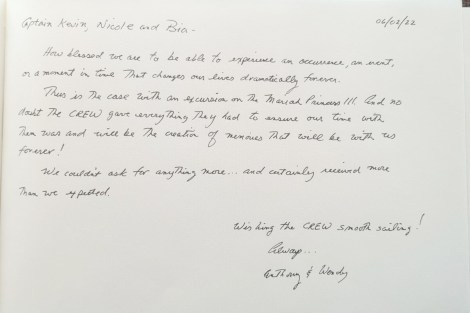 Captain Kevin, Nicole and Bia - 06/02/22
How blessed we are to be able to experience an occurrence, an event,
or a moment in time that changes our lives dramatically forever.
This is the case with an excursion on the Mariah Princess III. And no
doubt the CREW gave everything they had to ensure our time with
them was and will be the creation of memories that will be with us
forever!
We couldn't ask for anything more... and certainly received more
than we expected.
Wishing the CREW smooth sailing!
Always...
Anthony & Wendy